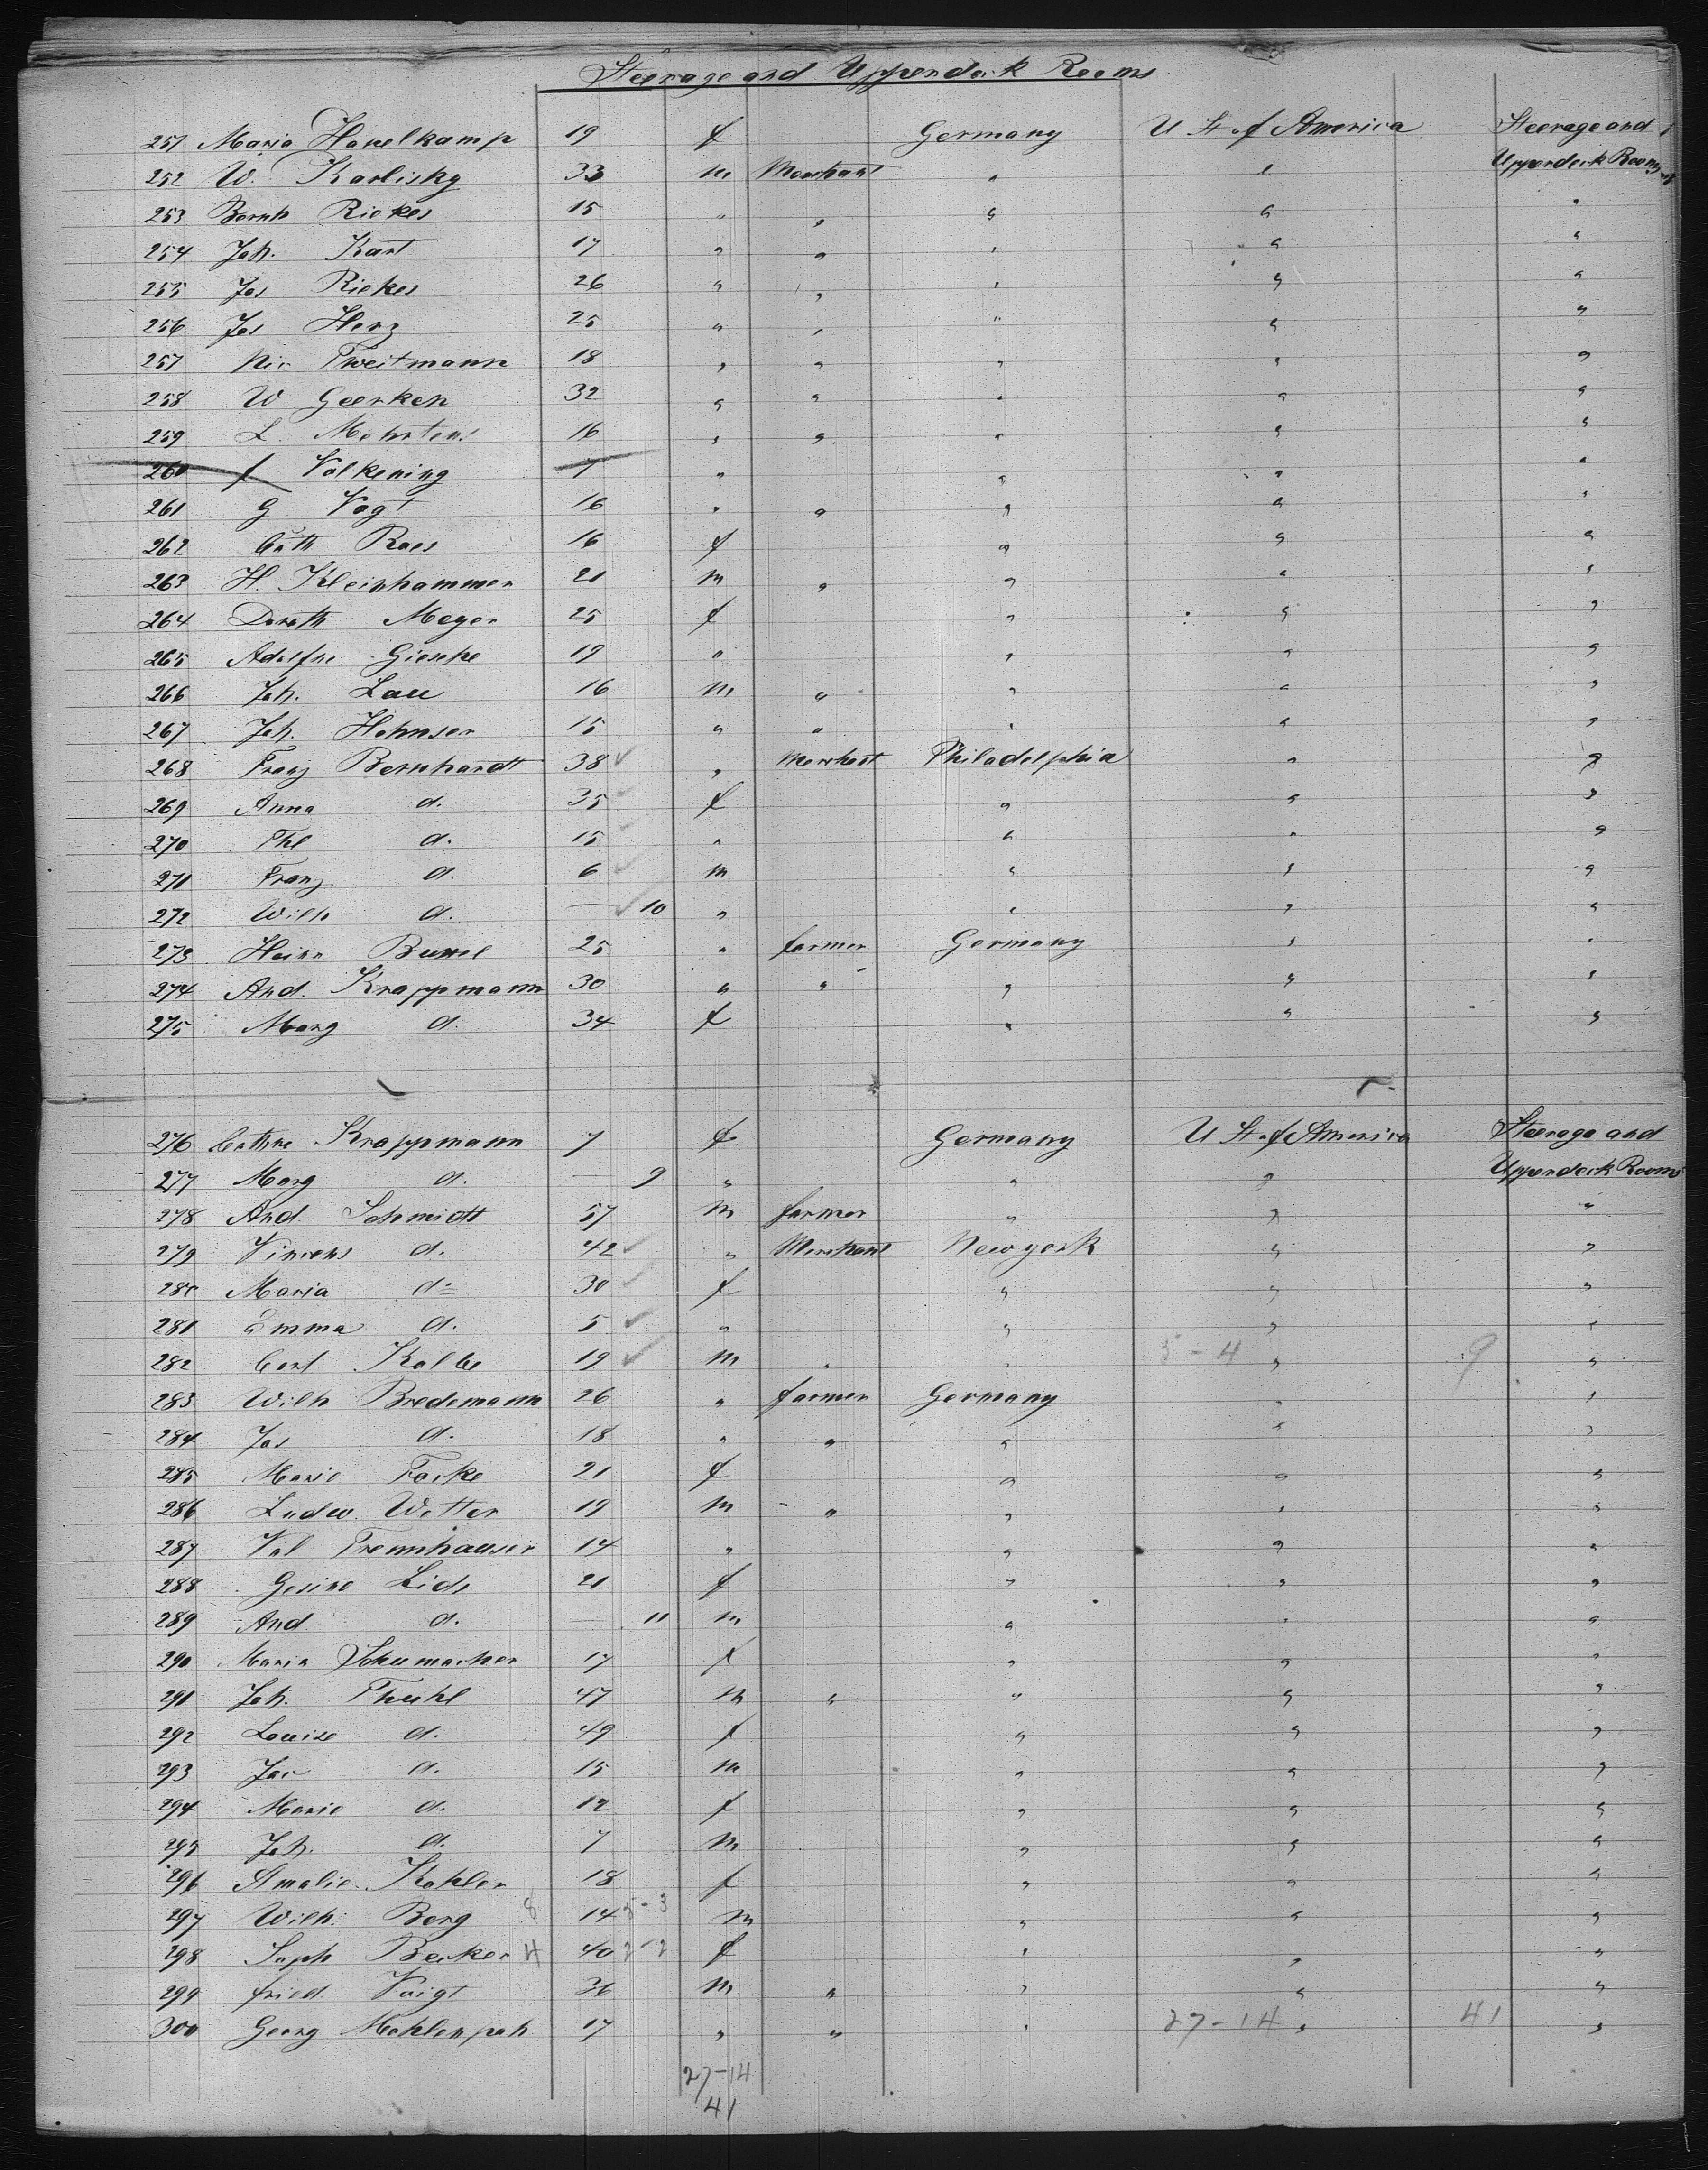 Steerage and Upperdeck Rooms
251 Maria Havelkamp 19 f Germany U St. of America Steerage and
252 W. Karlisky 33 m Merchant " " Upperdeck Rooms
253 Bernh Riekes 15 " " " " "
254 Joh. Kart 17 " " " " "
255 Jos Riekes 26 " " " " "
256 Jos Herz 25 " " " " "
257 Nic Tweitmann 18 " " " " "
258 W Geerken 32 " " " " "
259 L. Mehrtens 16 " " " " "
260 f Volkening 7 " " " "
261 G Vogt 16 " " " " "
262 Cath Raes 16 f " " "
263 H. Kleinhammer 21 m " " " "
264 Doroth Meyer 25 f " " "
265 Adolfne Gieseke 19 " " " "
266 Joh. Lau 16 m " " " "
267 Joh. Hehnsen 15 " " " " "
268 Franz Bernhardt 38 " Merchant Philadelphia " "
269 Anna d. 35 f " " "
270 Thl d. 15 " " " "
271 Franz d. 6 m " " "
272 Wilh d. — 10 " " " "
273 Heinr 25 " farmer Germany " "
274 And. Krappmann 30 " " " " "
275 Marg d. 34 f " " "
276 Cathne Krappmann 7 f Germany U St. of America Steerage and
277 Marg d. — 9 " " " Upperdeck Rooms
278 And. Schmidt 57 m farmer " " "
279 Vincens d. 42 " Merchant New york " "
280 Maria d. 30 f " " "
281 Emma d. 5 " " " "
282 Carl Kolbe 19 m " " 5-4 " 9 "
283 Wilh Bredemann 26 " farmer Germany " "
284 Jos d. 18 " " " " "
285 Marie Focke 21 f " " "
286 Ludw. Wetter 19 m " " " "
287 Val Trennhauser 14 " " " "
288 Gesine Lids 21 f " " "
289 And. d. — 11 m " " "
290 Maria Schumacher 17 f " " "
291 Joh. Thuhl 47 m " " " "
292 Louise d. 49 f " " "
293 Jac d. 15 m " " "
294 Marie d. 12 f " " "
295 Joh. d. 7 m " " "
296 Amalie Kohler 18 f " " "
297 Wilh. Berg 8 14 5-3 m " " "
298 Soph Becker 4 40 2-2 f " " "
299 fried. Voigt 36 m " " " "
300 Georg Mehlenpah 17 " " " 27-14 " 41 "
27-14
41